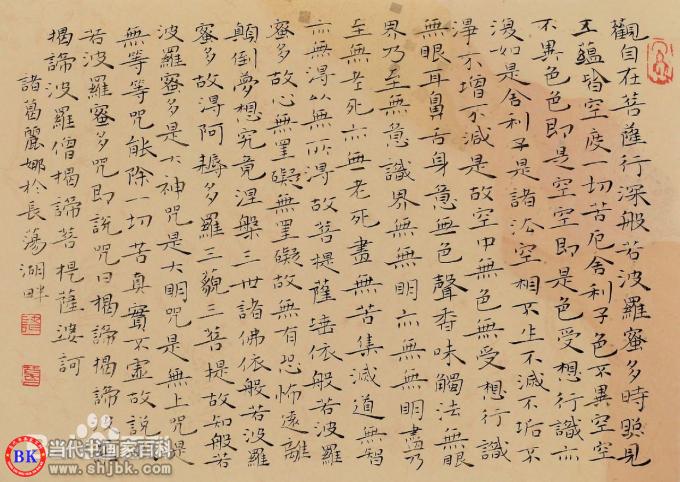 觀自在菩薩行深般若波羅蜜多時照見
五蘊皆空度一切苦厄舍利子色不異空空
不異色色即是空空即是色受想行識亦
復如是舍利子是諸法空相不生不滅不垢不
淨不增不減是故空中無色無受想行識
無眼耳鼻舌身意無色聲香味觸法無眼
界乃至無意識界無無明亦無無明盡乃
至無老死亦無老死盡無苦集滅道無智
亦無得以無所得故菩提薩埵依般若波羅
蜜多故心無罣礙無罣礙故無有恐怖遠離
顛倒夢想究竟涅槃三世諸佛依般若波羅
蜜多故得阿耨多羅三藐三菩提故知般若
波羅蜜多是大神咒是大明咒是無上咒是
無等等咒能除一切苦真實不虛故說
若波羅蜜多咒即說咒曰揭諦揭諦
揭諦波羅僧揭諦菩提薩婆訶
諸葛麗娜於長蕩湖畔
BK
当代书画家百科
www.shjbk.com